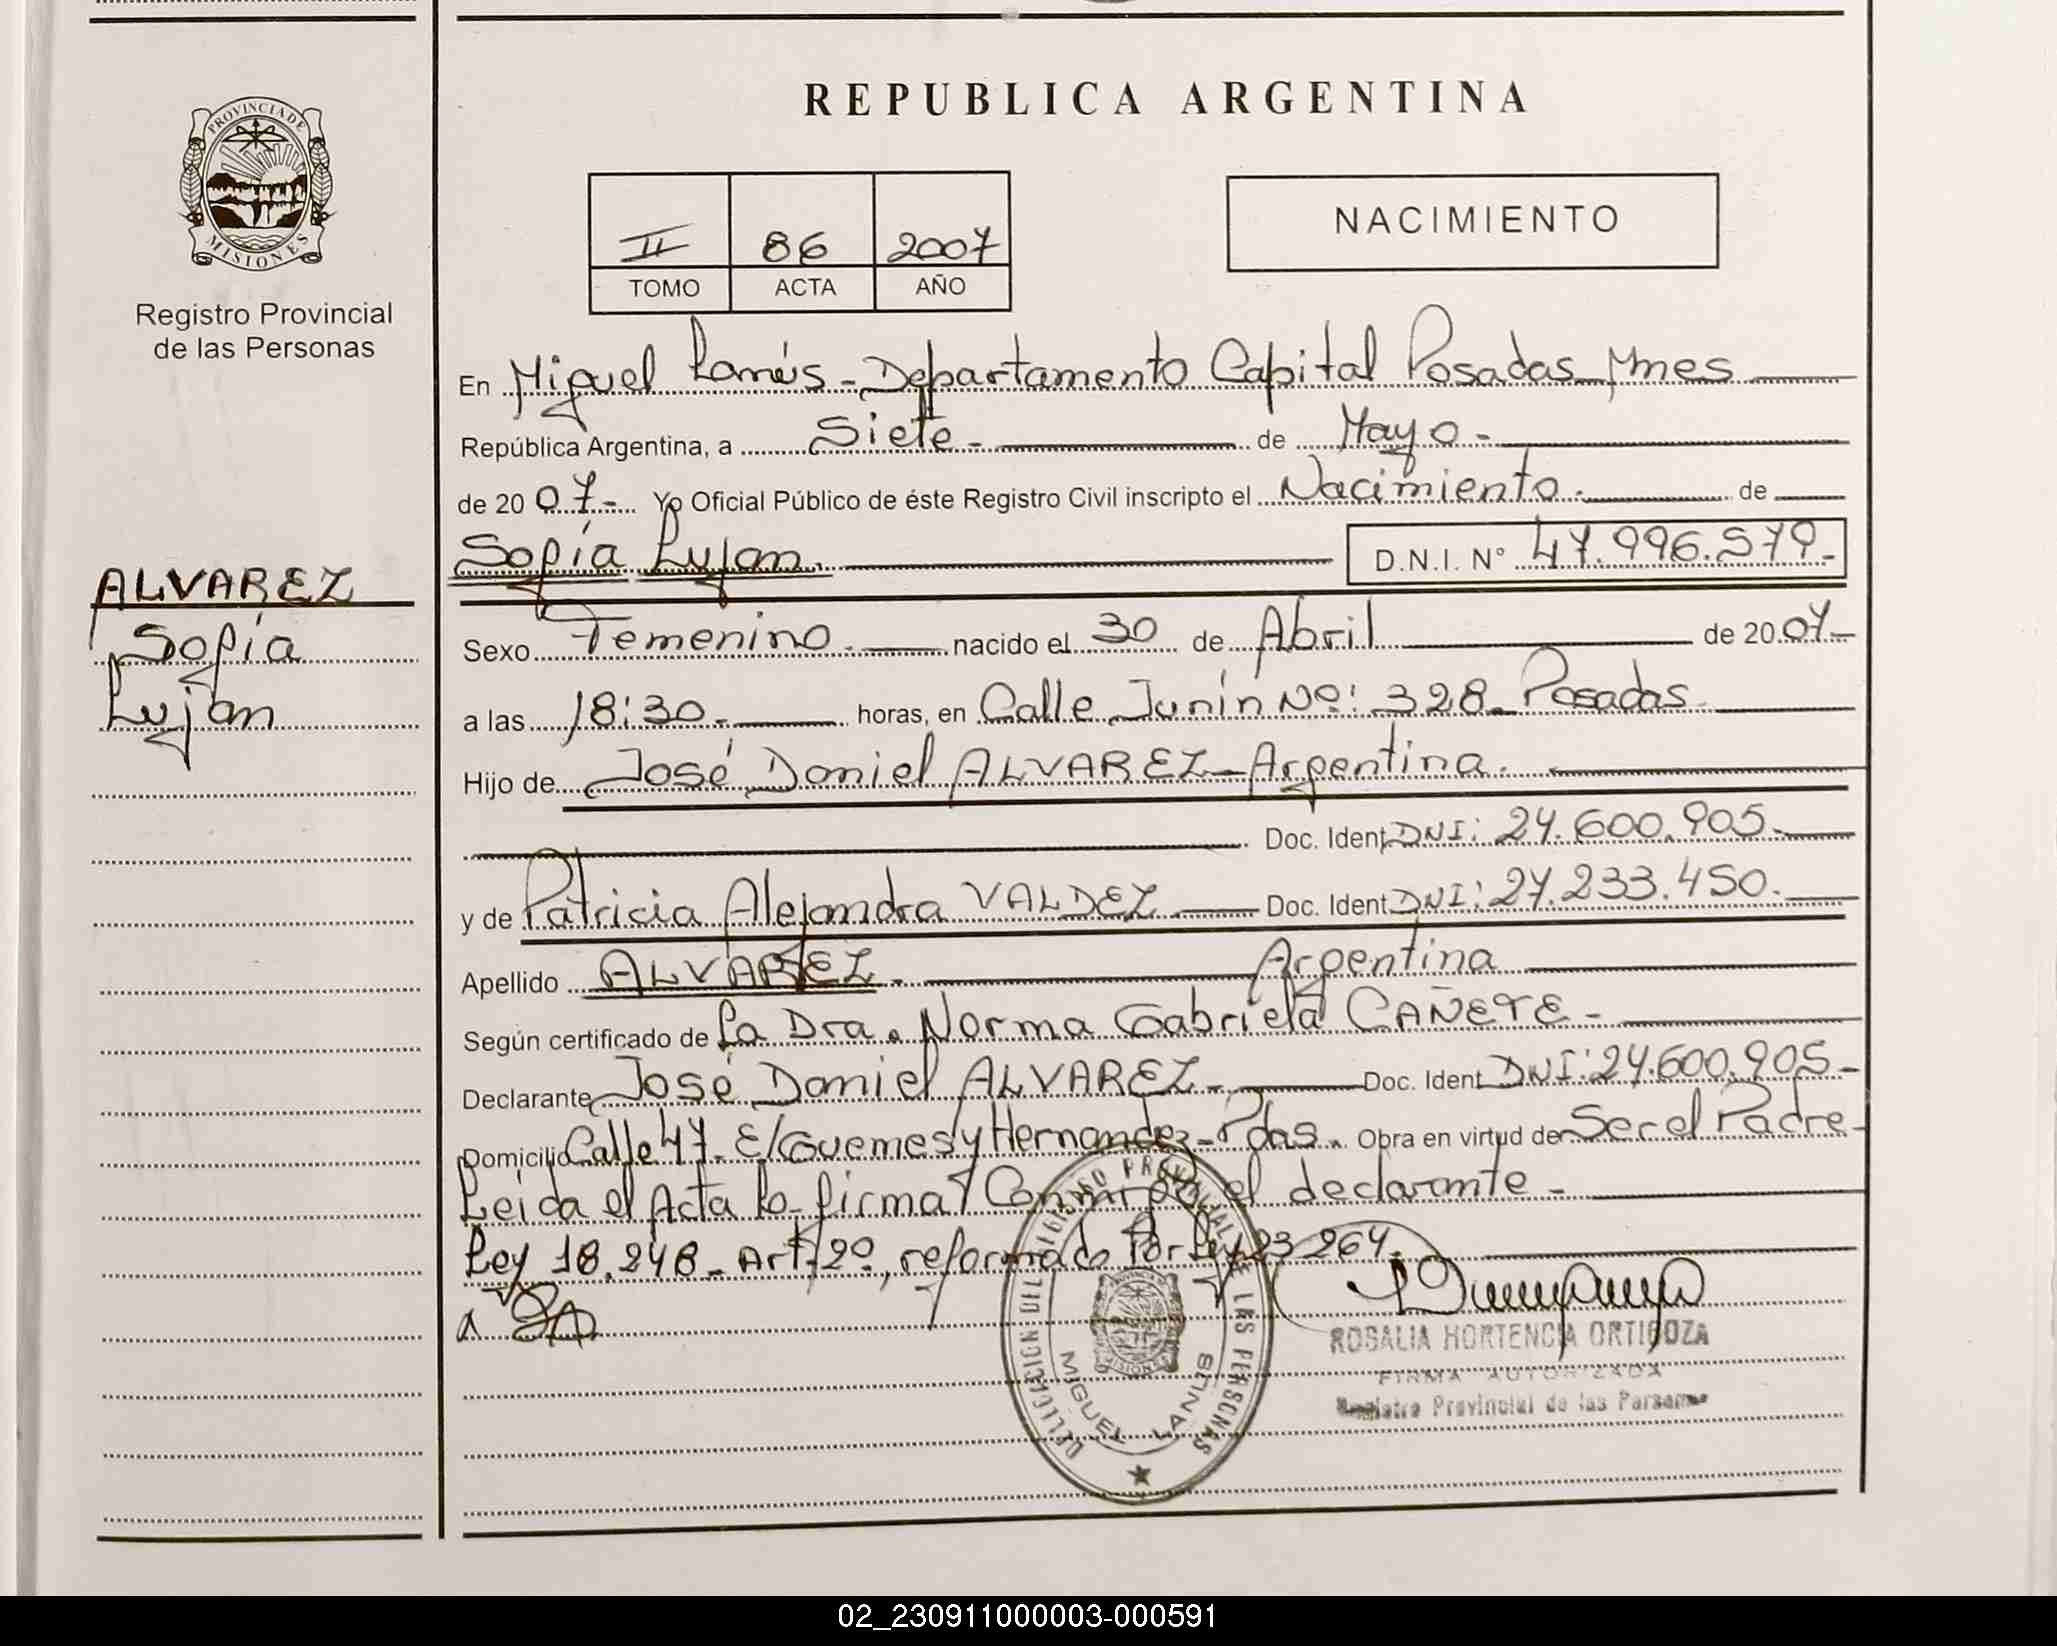 REPUBLICA ARGENTINA
PROVINCIA DE MISIONES
Registro Provincial
de las Personas
II 86 2007
TOMO ACTA AÑO
NACIMIENTO
En Miguel Lanús - Departamento Capital Posadas Mnes
República Argentina, a Siete - de Mayo -
de 2007 - Yo Oficial Público de éste Registro Civil inscripto el Nacimiento. de
Sofía Lujan. D.N.I. N° 47.996.579.-
ALVAREZ
Sofía
Lujan
Sexo Femenino. nacido el 30 de Abril de 2007-
a las 18:30. horas, en Calle Junín Nº: 328 - Posadas
Hijo de José Daniel ALVAREZ - Argentina.
Doc. Ident DNI: 24.600.905.
y de Patricia Alejandra VALDEZ Doc. Ident DNI: 27.233.450.
Apellido ALVAREZ. Argentina
Según certificado de La Dra. Norma Gabriela CAÑETE -
Declarante José Daniel ALVAREZ - Doc. Ident DNI: 24.600.905 -
Domicilio Calle 47 - E/Guemes y Hernandez - Pdas. Obra en virtud de Ser el Padre -
Leida el Acta la firma Conmigo el declarante -
Ley 18.248 - Art. 2º, reformado Por Ley 23 264.
DELEGACION DEL REGISTRO PROVINCIAL DE LAS PERSONAS
MIGUEL LANUS
ROSALIA HORTENCIA ORTIGOZA
FIRMA AUTORIZADA
Registro Provincial de las Personas
02_230911000003-000591